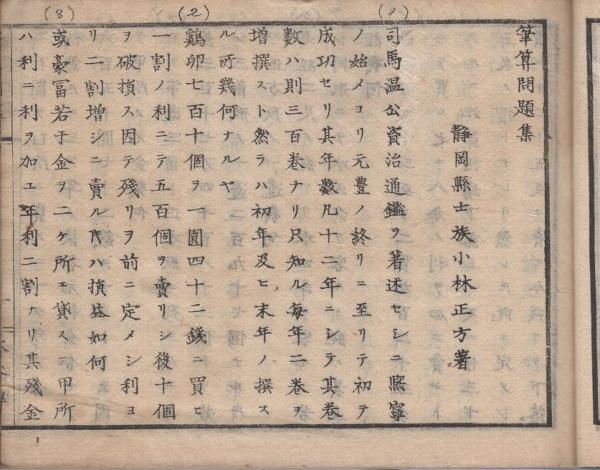 筆算問題集
静岡縣士族小林正方著
(1)
司馬温公資治通鑑ヲ著述セシニ熈寧
ノ始メヨリ元豊ノ終リニ至リテ初テ
成功セリ其年数凡十二年ニシテ其巻
数ハ則三百巻ナリ只知ル毎年二巻ヲ
増撰スト然ラハ初年及ヒ末年ノ撰ス
ル所幾何ナルヤ
(2)
鶏卵七百十個ヲ一圓四十二銭ニ買ヒ
一割ノ利ニテ五百個ヲ賣リシ後十個
ヲ破損ス因テ残リヲ前ニ定メシ利ヨ
リ二割増シニ賣ル時ハ損益如何
(3)
或豪冨若干金ヲ二ケ所ニ貸スニ甲所
ハ利ニ利ヲ加エ年利二割ナリ其残金